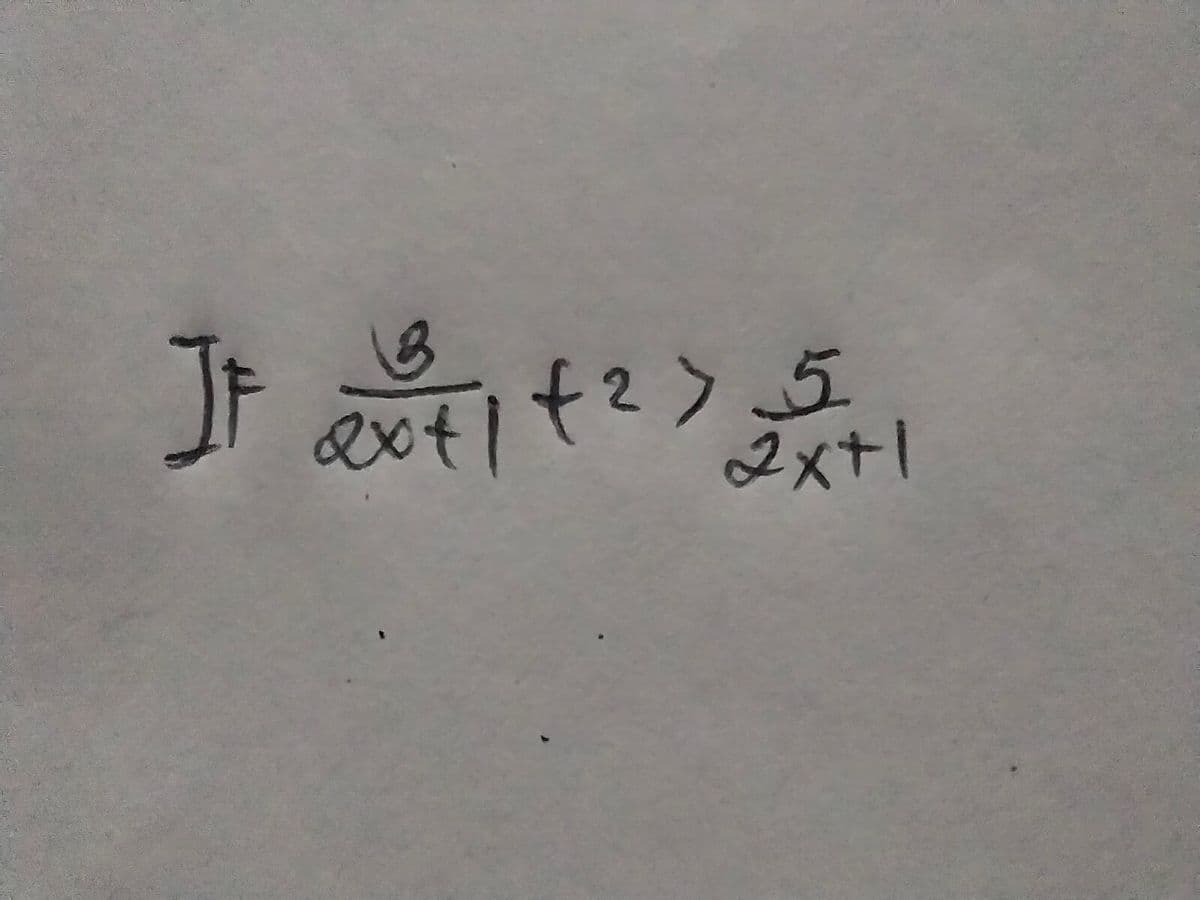 IF 3/2x+1 + 2 > 5/2x+1